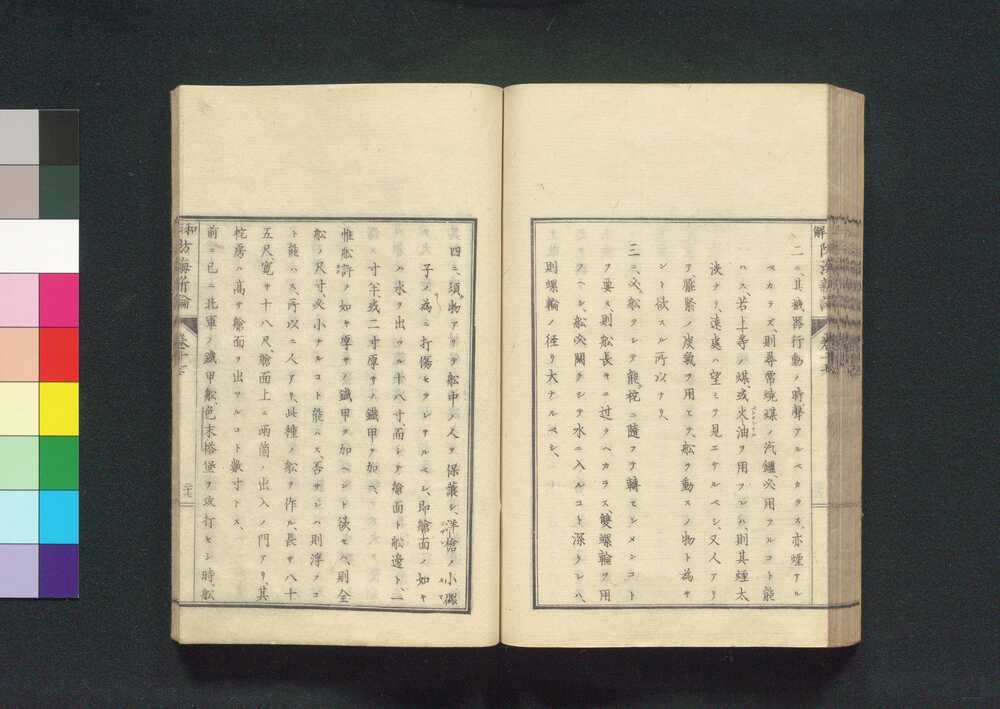 二ニ、其機器行動ノ時聲アルベカラス、亦煙アル
ベカラズ、則尋常燒煤ノ汽鑵必用フルコト能
ハス、若上等ノ煤、或火油ヲ用フレハ、則其煙太
淡ナリ、遠處ハ望ミテ見エサルベシ、又人アリ
ア、壓緊ノ炭氣ヲ用ヒテ、船ヲ動スノ物ト為サ
ント欲スル所以ナリ、
三ニ、必船ヲシテ能柁ニ隨フテ轉セシメンコト
ヲ要ス、則船長キニ過クヘカラス雙螺輪ヲ用
フヘシ、船必闊クシテ水ニ入ルコト深ケレハ、
則螺輪ノ徑リ大ナルベシ、
四ニ、須物アリテ船中ノ人ヲ保護シ、洋槍ノ小礮
子ノ為ニ打傷セラレサルベシ、即艙面ノ如キ
ハ水ヲ出ツル十八寸、而シテ艙面ト船邊ト、一
寸半、或二寸厚サノ鐵甲ヲ加ヘ、
惟船許ノ如キ厚サノ鐵甲ヲ加ヘント欲セハ、則全
船ノ尺寸、必小ナルコト能ハス、否サレハ則浮フコ
ト能ハス、所以ニ人アリ、此種ノ船ヲ作ル、長サ八十
五尺寛サ十八尺、艙面上ニ兩箇ノ出入ノ門アリ、其
柁房ハ高サ艙面ヲ出ツルコト數寸トス、
前ニ已ニ北軍ノ鐵甲船、色末塔堡ヲ攻打セシ時、船
和解防海新論 卷十五
二十七